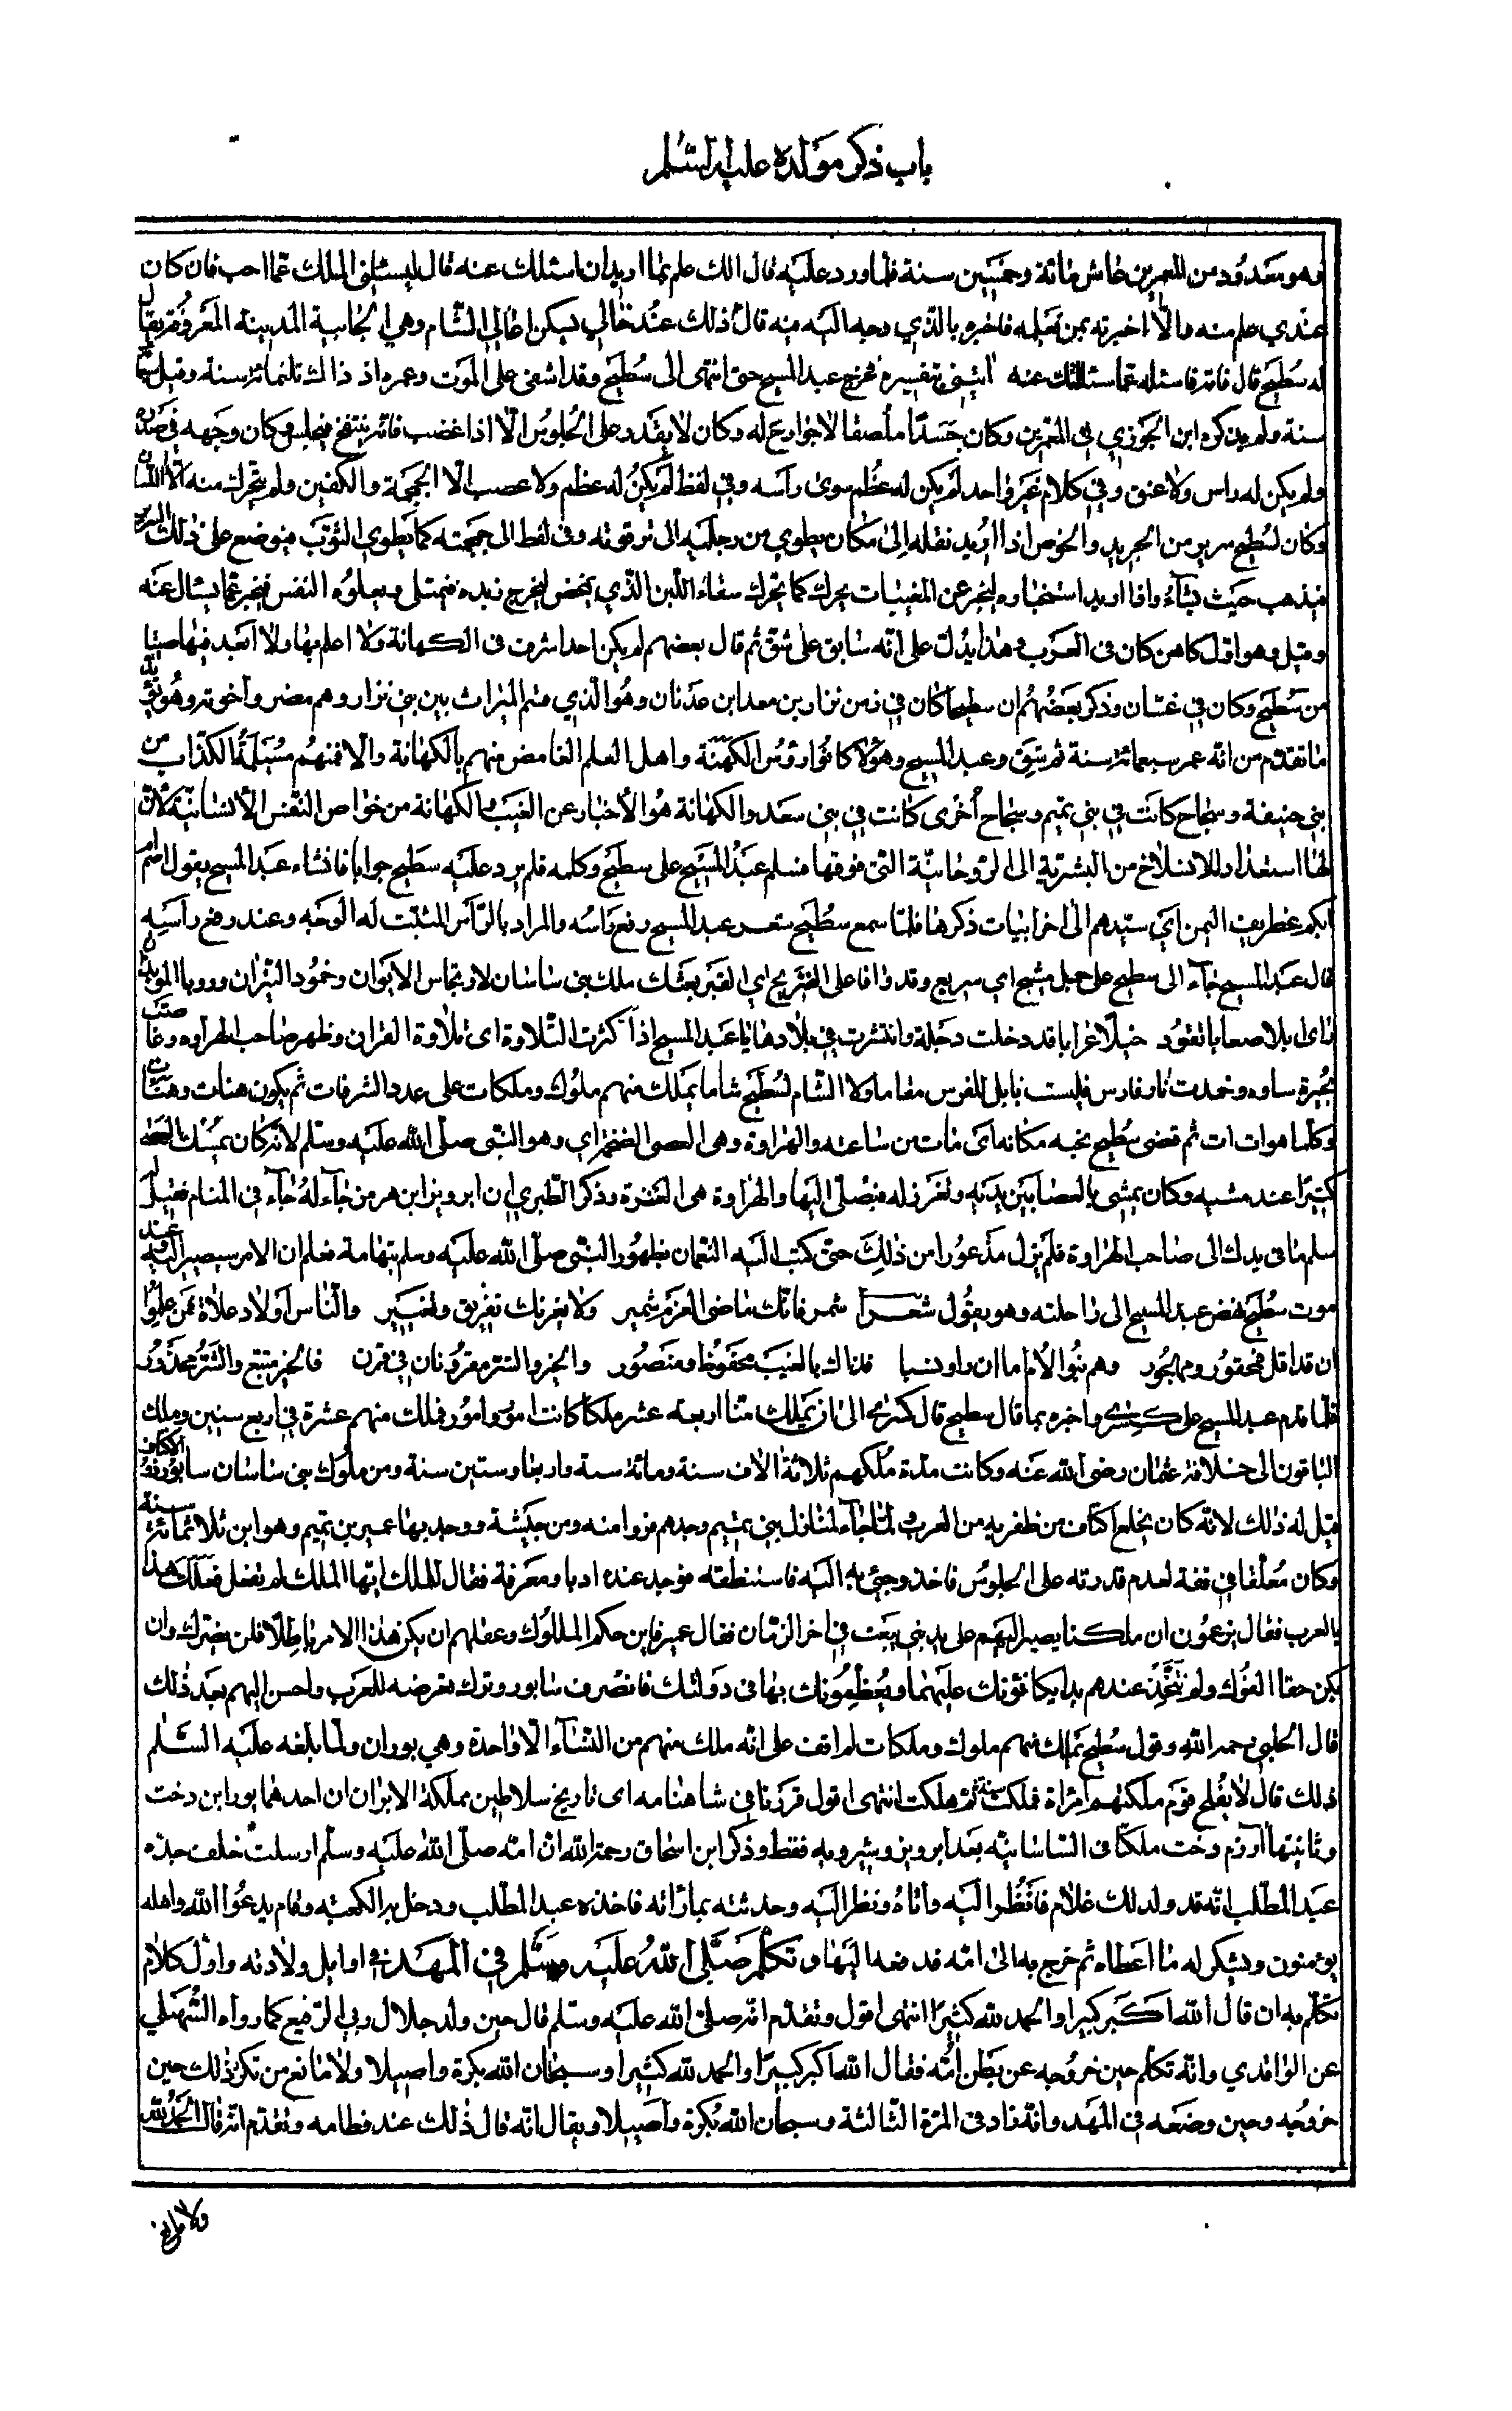 باب ذكر مولده عليه السلم
وهو معدود من المعمرين عاش مائة وخمسين سنة فلما ورد عليه قال الك علم بما اريد ان اسئلك عنه قال ليسئلني الملك عما احب فان كان
عندي علم منه والا اخبرته بمن يعلمه فاخبره بالذي وجه اليه فيه قال ذلك عند خالي يسكن اعالي الشام وهي الجابية المدينة المعروفة يقال
له سطيح قال فاته فاسئله عما سئلتك عنه ائتيني بتفسيره فخرج عبد المسيح حتى انتهى الى سطيح وقد اشفى على الموت وعمره اذ ذاك ثلثمائة سنة وقيل سبعمائة
سنة ولم يذكره ابن الجوزي في المعمرين وكان جسدا ملصقا لا جوارح له وكان لا يقدر على الجلوس الا اذا غضب فانه ينتفخ فيجلس وكان وجهه في صدره
ولم يكن له راس ولا عنق وفي كلام غير واحد لم يكن له عظم سوى رأسه وفي لفظ لم يكن له عظم ولا عصب الا الجمجمة والكفين ولم يتحرك منه الا اللسان
وكان لسطيح سرير من الجريد والخوص اذا اريد نقله الى مكان يطوي من رجليه الى ترقوته وفي لفظ الى جمجمته كما يطوي الثوب فيوضع على ذلك السرير
فيذهب حيث يشاء واذا اريد استخباره ليخبر عن المغيبات يحرك كما يحرك سقاء اللبن الذي يمخض ليخرج زبده فيمتلى ويعلوه النفس فيخبر عما يسئال عنه
وقيل وهو اول كاهن كان في العرب وهذا يدل على انه سابق على شق ثم قال بعضهم لم يكن احد اشرف في الكهانة ولا اعلم بها ولا ابعد فيها صيتا
من سطيح وكان في غسان وذكر بعضهم ان سطيحا كان في زمن نزار بن معد ابن عدنان وهو الذي قسم الميراث بين بني نزار وهم مضر واخوته وهو يؤيد
ما تقدم من انه عمر سبعمائة سنة ثم شق وعبد المسيح وهؤلا كانوا رؤس الكهنة واهل العلم الغامض منهم بالكهانة والا فمنهم مسيلمة الكذاب من
بني حنيفة وسجاح كانت في بني تميم وسجاح اخرى كانت في بني سعد والكهانة هو الاخبار عن الغيب والكهانة من خواص النفس الانسانية لان
لها استعداد للانسلاخ من البشرية الى الروحانية التي فوقها فسلم عبد المسيح على سطيح وكلمه فلم يرد عليه سطيح جوابا فانشاء عبد المسيح يقول اصم ام
ابكم غطريف اليمن اي سيدهم الى اخر ابيات ذكرها فلما سمع سطيح شعر عبد المسيح رفع راسه والمراد بالرأس المثبت له الوجه وعند رفع رأسه
قال عبد المسيح جاء الى سطيح على جمل مشيح اي سريع وقد وافا على الضريح اي القبر بعثك ملك بني ساسان لارتجاس الايوان وخمود النيران ورويا الموبذان
راى ابلا صعابا تقود خيلا عرابا قد دخلت دجلة وانتشرت في بلادها يا عبد المسيح اذا كثرت التلاوة اي تلاوة القران وظهر صاحب الهراوه وغاضت
بحيرة ساوه وخمدت نار فارس فليست بابل للفرس مقاما ولا الشام لسطيح شاما يملك منهم ملوك وملكات على عدد الشرفات ثم يكون هنات وهنات
وكلما هو ات ات ثم قضى سطيح نحبه مكانه اي مات من ساعته والهراوة وهي العصى الضخم اي وهو النبي صلى الله عليه وسلم لانه كان يمسك العصا
كثيرا عند مشيه وكان يمشي بالعصا بين يديه وتغرز له فيصلى اليها والهراوة هي العنزة وذكر الطبري ان ابرويز ابن هرمز جاء له جاء في المنام فقيل له
سلم ما في يدك الى صاحب الهراوة فلم يزل مذعورا من ذلك حتى كتب اليه النعمان بظهور النبي صلى الله عليه وسلم بتهامة فعلم ان الامر سيصير اليه وعند
موت سطيح نهض عبد المسيح الى راحلته وهو يقول شعرا شمر فانك ماضى العزم شمير ولا يغرنك تفريق وتغيير والناس اولاد علاة فمن علموا
ان قد اقل فمحقور ومهجور وهم بنوا الام اما ان راو نسبا فذاك بالغيب محفوظ ومنصور والخير والشر مقرونان في قرن فالخير متبع والشر محذور
فلما قدم عبد المسيح على كسرى واخبره بما قال سطيح قال كسرى الى ان يملك منا اربعة عشر ملكا كانت امور وامور فملك منهم عشرة في اربع سنين وملك
الباقون الى خلافة عثمان رضى الله عنه وكانت مدة ملكهم ثلاثة الاف سنة ومائة سنة واربعا وستين سنة ومن ملوك بني ساسان سابور ذو الاكتاف
قيل له ذلك لانه كان يخلع اكتاف من ظفر به من العرب ولما جاء لمنازل بني تميم وجدهم فروا منه ومن جيشة ووجد بها عمير بن تميم وهو ابن ثلاثمائة سنة
وكان معلقا في قفة لعدم قدرته على الجلوس فاخذ وجئ به اليه فاستنطقه فوجد عنده ادبا ومعرفة فقال للملك ايها الملك لم تفعل فعلك هذا
بالعرب فقال يزعمون ان ملكنا يصير اليهم على يد نبي يبعث في اخر الزمان فقال عمير فاين حكم الملوك وعقلهم ان يكن هذا الامر باطلا فلن يضرك وان
يكن حقا الفوك ولم تتخذ عندهم يدا يكافؤنك عليهما ويعظمونك بها في دولتك فانصرف سابور وترك تعرضه للعرب واحسن اليهم بعد ذلك
قال الحلبي رحمه الله وقول سطيح تملك منهم ملوك وملكات لم اقف على انه ملك منهم من النساء الا واحدة وهي بوران ولما بلغه عليه السلم
ذلك قال لا يفلح قوم ملكتهم امراة فملكت سنة ثم هلكت انتهى اقول قرزنا في شاهنامه اى تاريخ سلاطين مملكة الايران ان احدهما پورابن دخت
وثانيتها آرزم دخت ملكتا في الساسانيه بعد ابرويز وشيرويه فقط وذكر ابن اسحاق رحمة الله ان امه صلى الله عليه وسلم ارسلت خلف جده
عبد المطلب انه قد ولد لك غلام فانظر اليه واتاه ونظر اليه وحدثته بما رأته فاخذه عبد المطلب ودخل به الكعبه وقام يدعوا الله واهله
يؤمنون ويشكر له ما اعطاه ثم خرج به الى امه فدفعه اليها وتكلم صلى الله عليه وسلم في المهد في اوايل ولادته واول كلام
تكلم به ان قال الله اكبر كبيرا والحمد لله كثيرا انتهى اقول وتقدم انه صلى الله عليه وسلم قال حين ولد جلال ربي الرفيع كما رواه السهيلي
عن الواقدي وانه تكلم حين خروجه عن بطن امه فقال الله اكبر كبيرا والحمد لله كثيرا وسبحان الله بكرة واصيلا ولا مانع من تكرر ذلك حين
خروجه وحين وضعه في المهد وانه زاد في المرة الثالثة وسبحان الله بكرة واصيلا ويقال انه قال ذلك عند فطامه وتقدم انه قال الحمد لله
ولا مانع